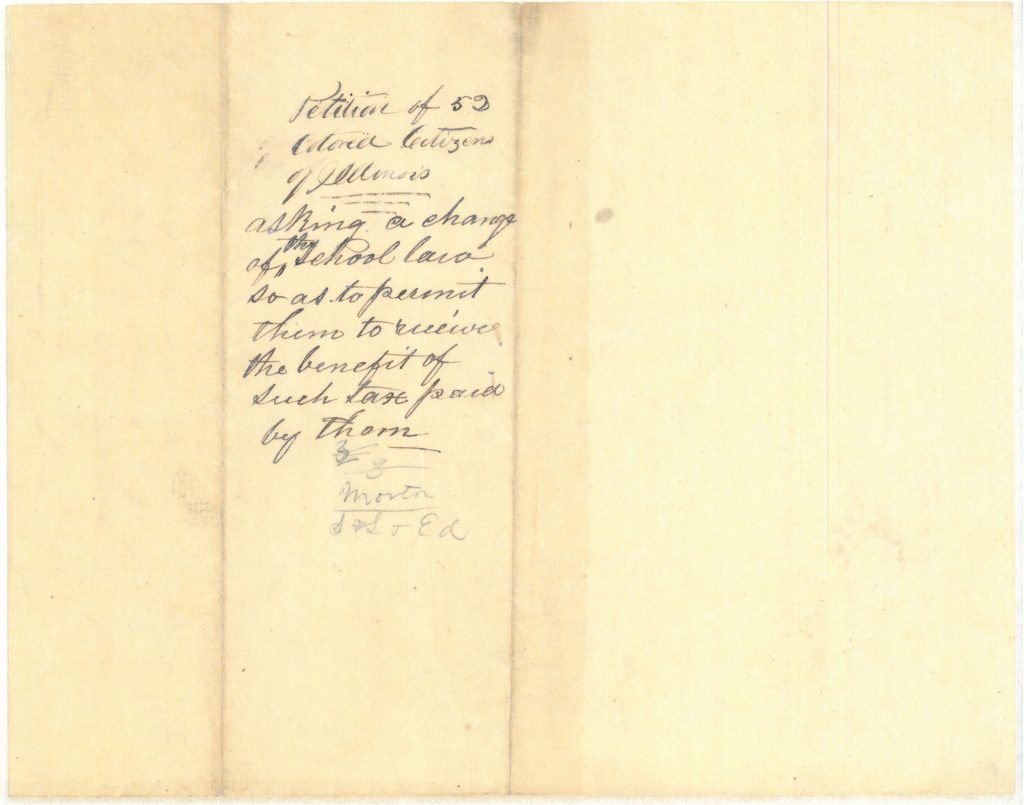 Petition of 52
Colored Citizens
of Illinois
asking a change
of the School law
so as to permit
them to receive
the benefit of
such tax paid
by them
2
Morton
S & S & Ed